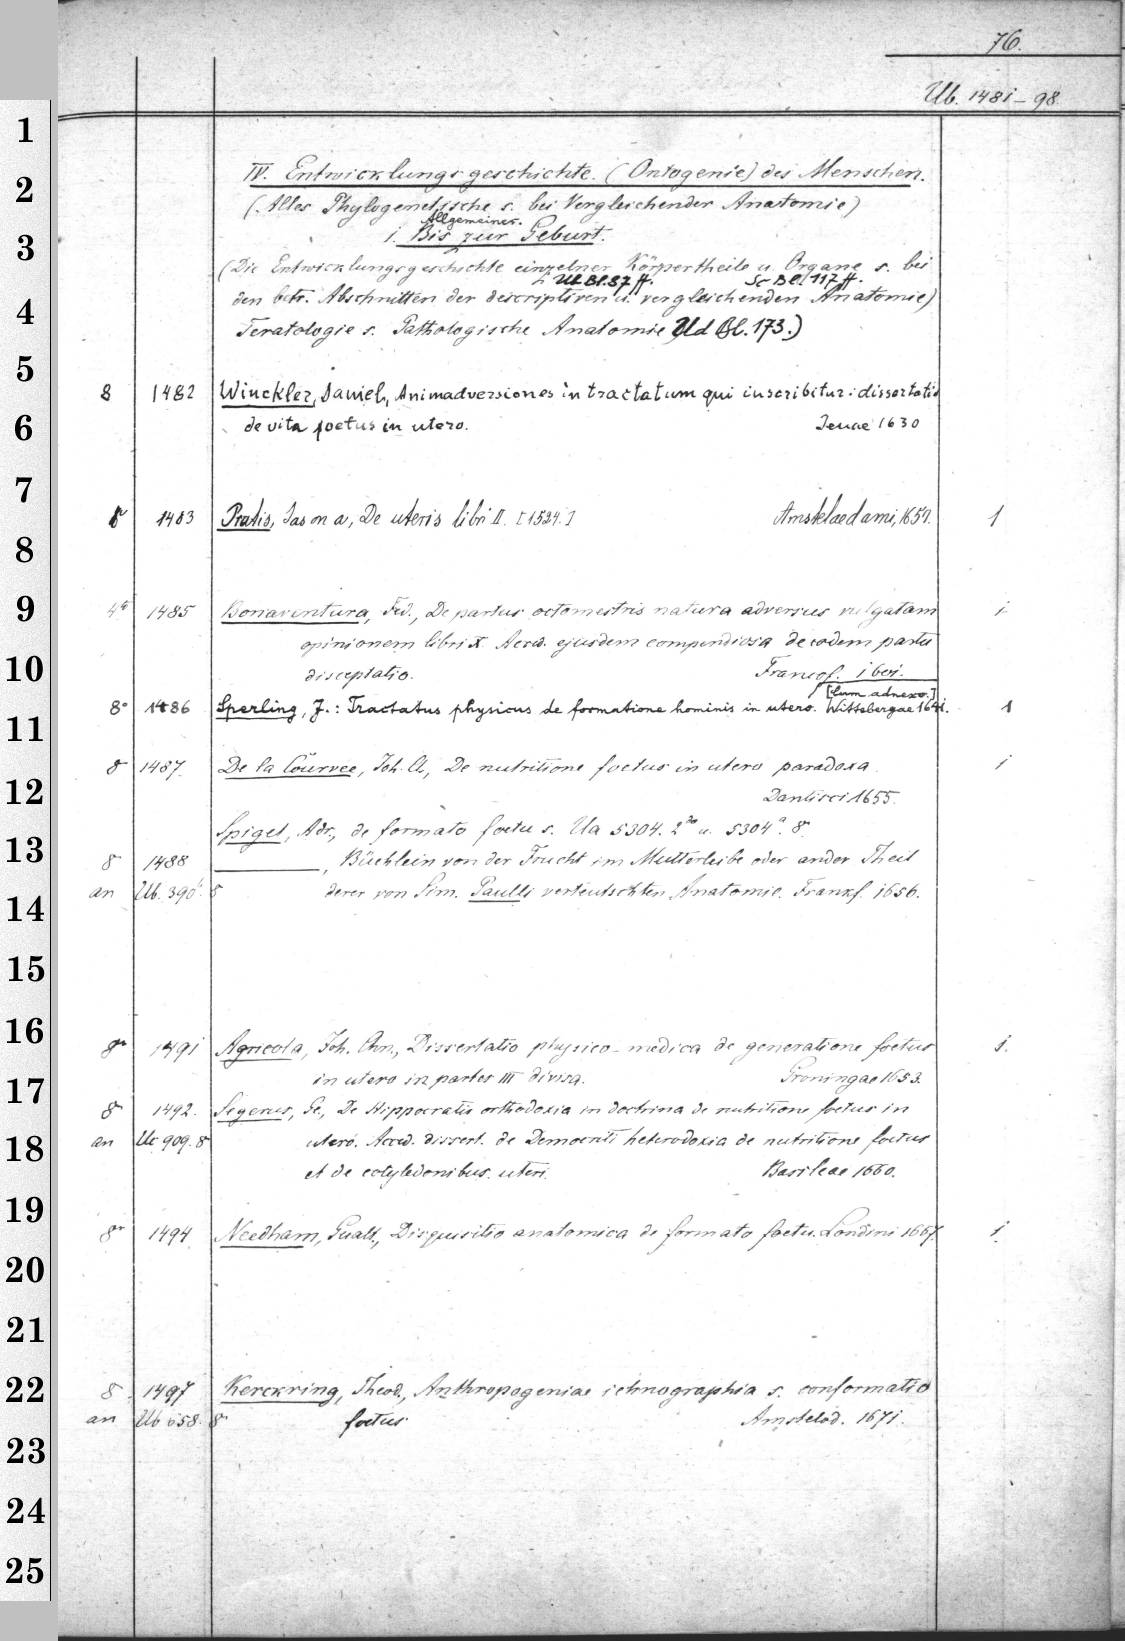 76.
Ub. 1481-98
1
2
3
4
5
6
7
8
9
10
11
12
13
14
15
16
17
18
19
20
21
22
23
24
25
IV. Entwicklungsgeschichte. (Ontogenie) des Menschen.
(Alles Phylogenetische s. bei Vergleichender Anatomie)
Allgemeines.
1. Bis zur Geburt.
(Die Entwicklungsgeschichte einzelner Körpertheile u. Organe s. bei
Ub Bl. 37 ff. Sc Bl. 117 ff.
den betr. Abschnitten der descriptiven u. vergleichenden Anatomie)
Teratologie s. Pathologische Anatomie Ud Bl. 173.)
8 1482 Winckler, Daniel, Animadversiones in tractatum qui inscribitur: dissertatio
de vita foetus in utero. Jenae 1630
8 1483 Pratis, Jason a, De uteris libri II. [1524.] Amstelaedami, 1657. 1
4° 1485 Bonaventura, Fed., De partus octomestris natura adversus vulgatam 1
opinionem libri X. Acced. ejusdem compendiosa de eodem partu
disceptatio. Francof. 1601.
[Cum adnexo.]
8° 1486 Sperling, J.: Tractatus physicus de formatione hominis in utero. Wittebergae 1641. 1
8 1487. De la Coürvee, Joh. Cl., De nutritione foetus in utero paradoxa. 1
Dantisci 1655.
Spigel, Adr., de formato foetu s. Ua 5304. 2° u. 5304a. 8.
8 1488 ———, Büchlein von der Frucht im Mutterleibe oder ander Theil
an Ub. 390. 8 derer von Sim. Paulli verteutschten Anatomie. Frankf. 1656.
8° 1491 Agricola, Joh. Chn., Dissertatio physico-medica de generatione foetus 1.
in utero in partes III divisa. Groningae 1653.
8 1492. Segerus, Ge., De Hippocratis orthodoxia in doctrina de nutritione foetus in
an Uc 909. 8 utero. Acced. dissert. de Democriti heterodoxia de nutritione foetus
et de cotyledonibus uteri. Basileae 1660.
8° 1494 Needham, Gualt., Disquisitio anatomica de formato foetu. Londini 1667. 1.
8. 1497 Kerckring, Theod., Anthropogeniae ichnographia s. conformatio
an Ub 658. 8 foetus Amstelod. 1671.